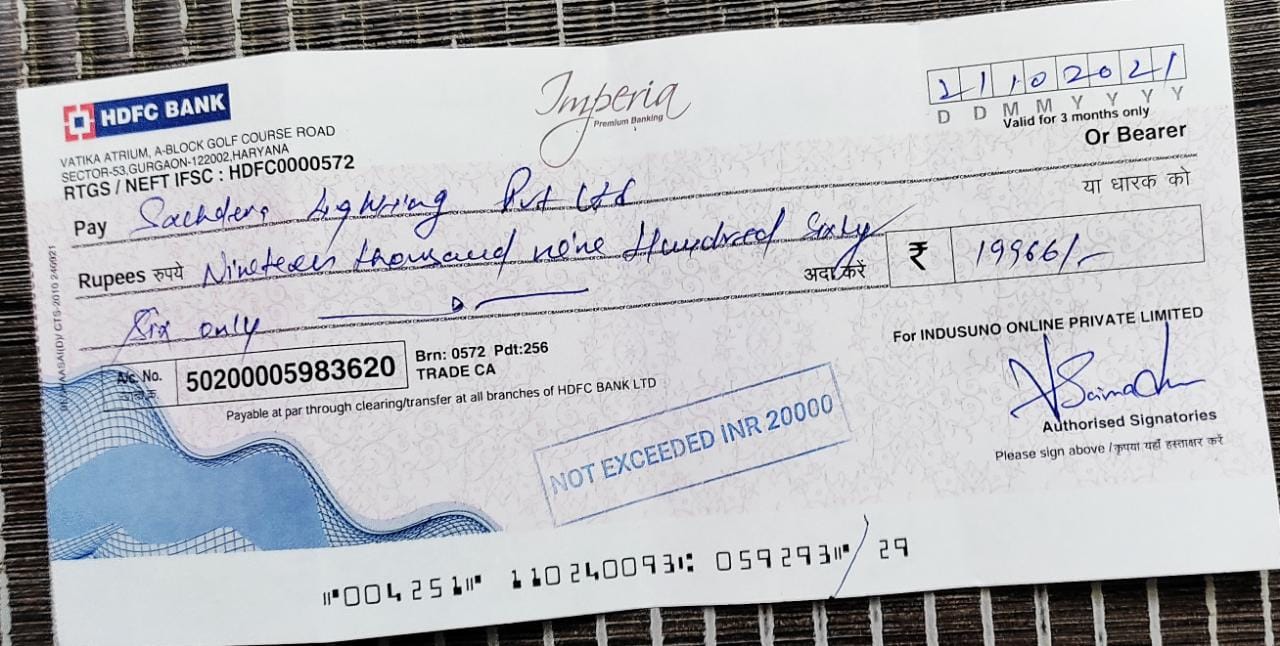 HDFC BANK
VATIKA ATRIUM, A-BLOCK GOLF COURSE ROAD
SECTOR-53,GURGAON-122002,HARYANA
RTGS / NEFT IFSC : HDFC0000572
Imperia
Premium Banking
21102021
D D M M Y Y Y Y
Valid for 3 months only
Or Bearer
या धारक को
Pay Pvt Ltd
Rupees रुपये Nineteen thousand nine Hundred Sixty
अदा करें ₹ 19966/-
Six only
A/c. No. 50200005983620
Brn: 0572 Pdt:256
TRADE CA
Payable at par through clearing/transfer at all branches of HDFC BANK LTD
For INDUSUNO ONLINE PRIVATE LIMITED
NOT EXCEEDED INR 20000
Authorised Signatories
Please sign above / कृपया यहाँ हस्ताक्षर करें
⑈004251⑈ 110240093⑆ 059293⑈ 29